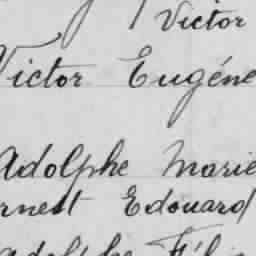 Victor
Victor Eugéne
Adolphe Marie
Ernest Edouard
Adolphe